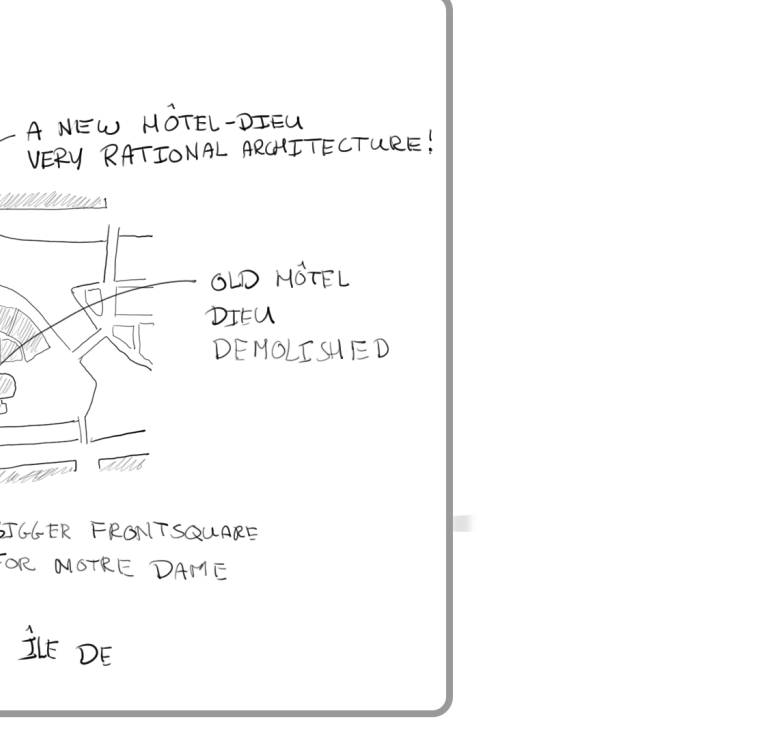 A NEW HÔTEL-DIEU
VERY RATIONAL ARCHITECTURE!
OLD HÔTEL
DIEU
DEMOLISHED
BIGGER FRONTSQUARE
FOR NOTRE DAME
ÎLE DE